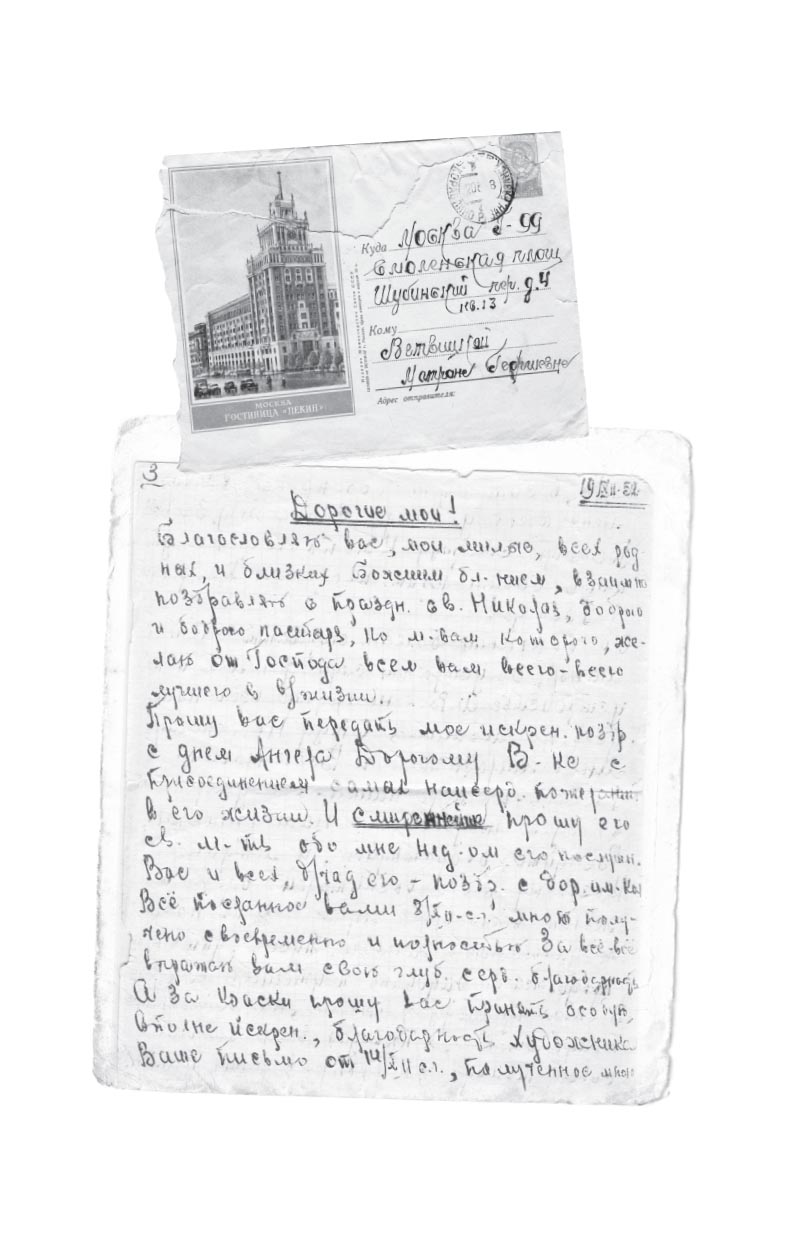 Куда Москва Г-99
Смоленская площ
Шубинский пер. д.4
кв.13
Кому
Ветвицкой
Матроне Георгиевне
Адрес отправителя:
МОСКВА
ГОСТИНИЦА «ПЕКИН»
3
19 XII-52
Дорогие мои!
Благословляю вас, мои милые, всех род-
ных, и близких Божиим бл-нием, взаимно
поздравляю с праздн. св. Николая, доброго
и бодрого пастыря, по м-вам которого, же-
лаю от Господа всем вам всего-всего
лучшего в жизни
Прошу вас передать мое искрен. поздр.
с днем Ангела Дорогому В-ке с
присоединением самых наисерд. пожеланий
в его жизни. И смиреннейше прошу его
св. м-тв обо мне нед-ом его послушн.
Вас и всех чад его - поздр. с дор. им-ком
Всё посланное вами 8/XII-с.г. мною полу-
чено своевременно и полностью. За всё-всё
выражаю вам свою глуб. серд. благодарность
А за краски прошу вас принять особую,
вполне искрен., благодарность художника
Ваше письмо от 14/XII с.г., полученное мною